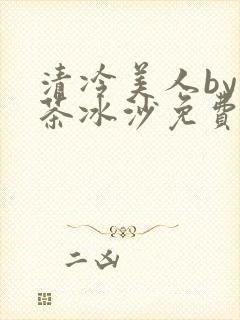 清冷美人by
茶冰沙免費
二凶